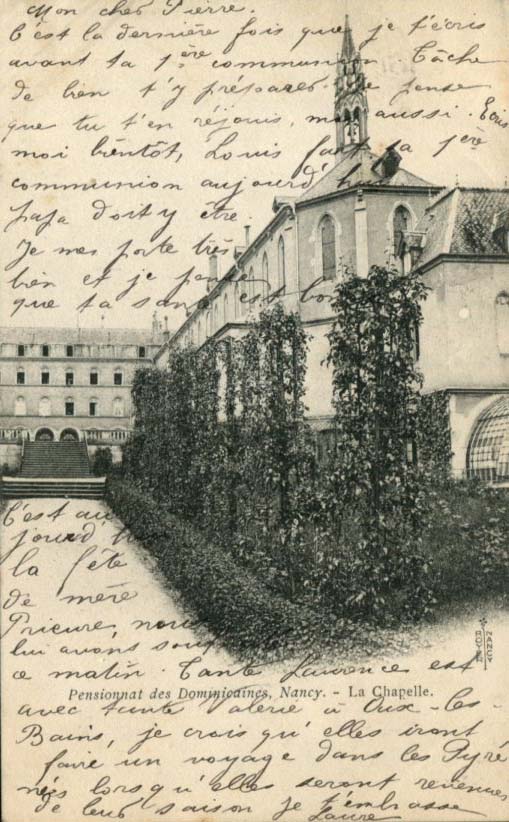 Mon cher Pierre.
C'est la dernière fois que je t'écris
avant ta 1ère communion. Tâche
de bien t'y préparer. Je pense
que tu t'en réjouis, moi aussi. Ecris
moi bientôt, Louis fait sa 1ère
communion aujourd'hui
papa doit y être
Je me porte très
bien et je pense
que ta santé est bonne
C'est au
jourd'hui
la fête
de mère
Prieure, nous
lui avons
ce matin. Tante Laurence est
Pensionnat des Dominicaines, Nancy. - La Chapelle.
ROYER
NANCY
avec tante Valérie à Aix-les-
Bains, je crois qu'elles iront
faire un voyage dans les Pyré
nées lorsqu'elles seront revenues
de leur saison je t'embrasse
Laure